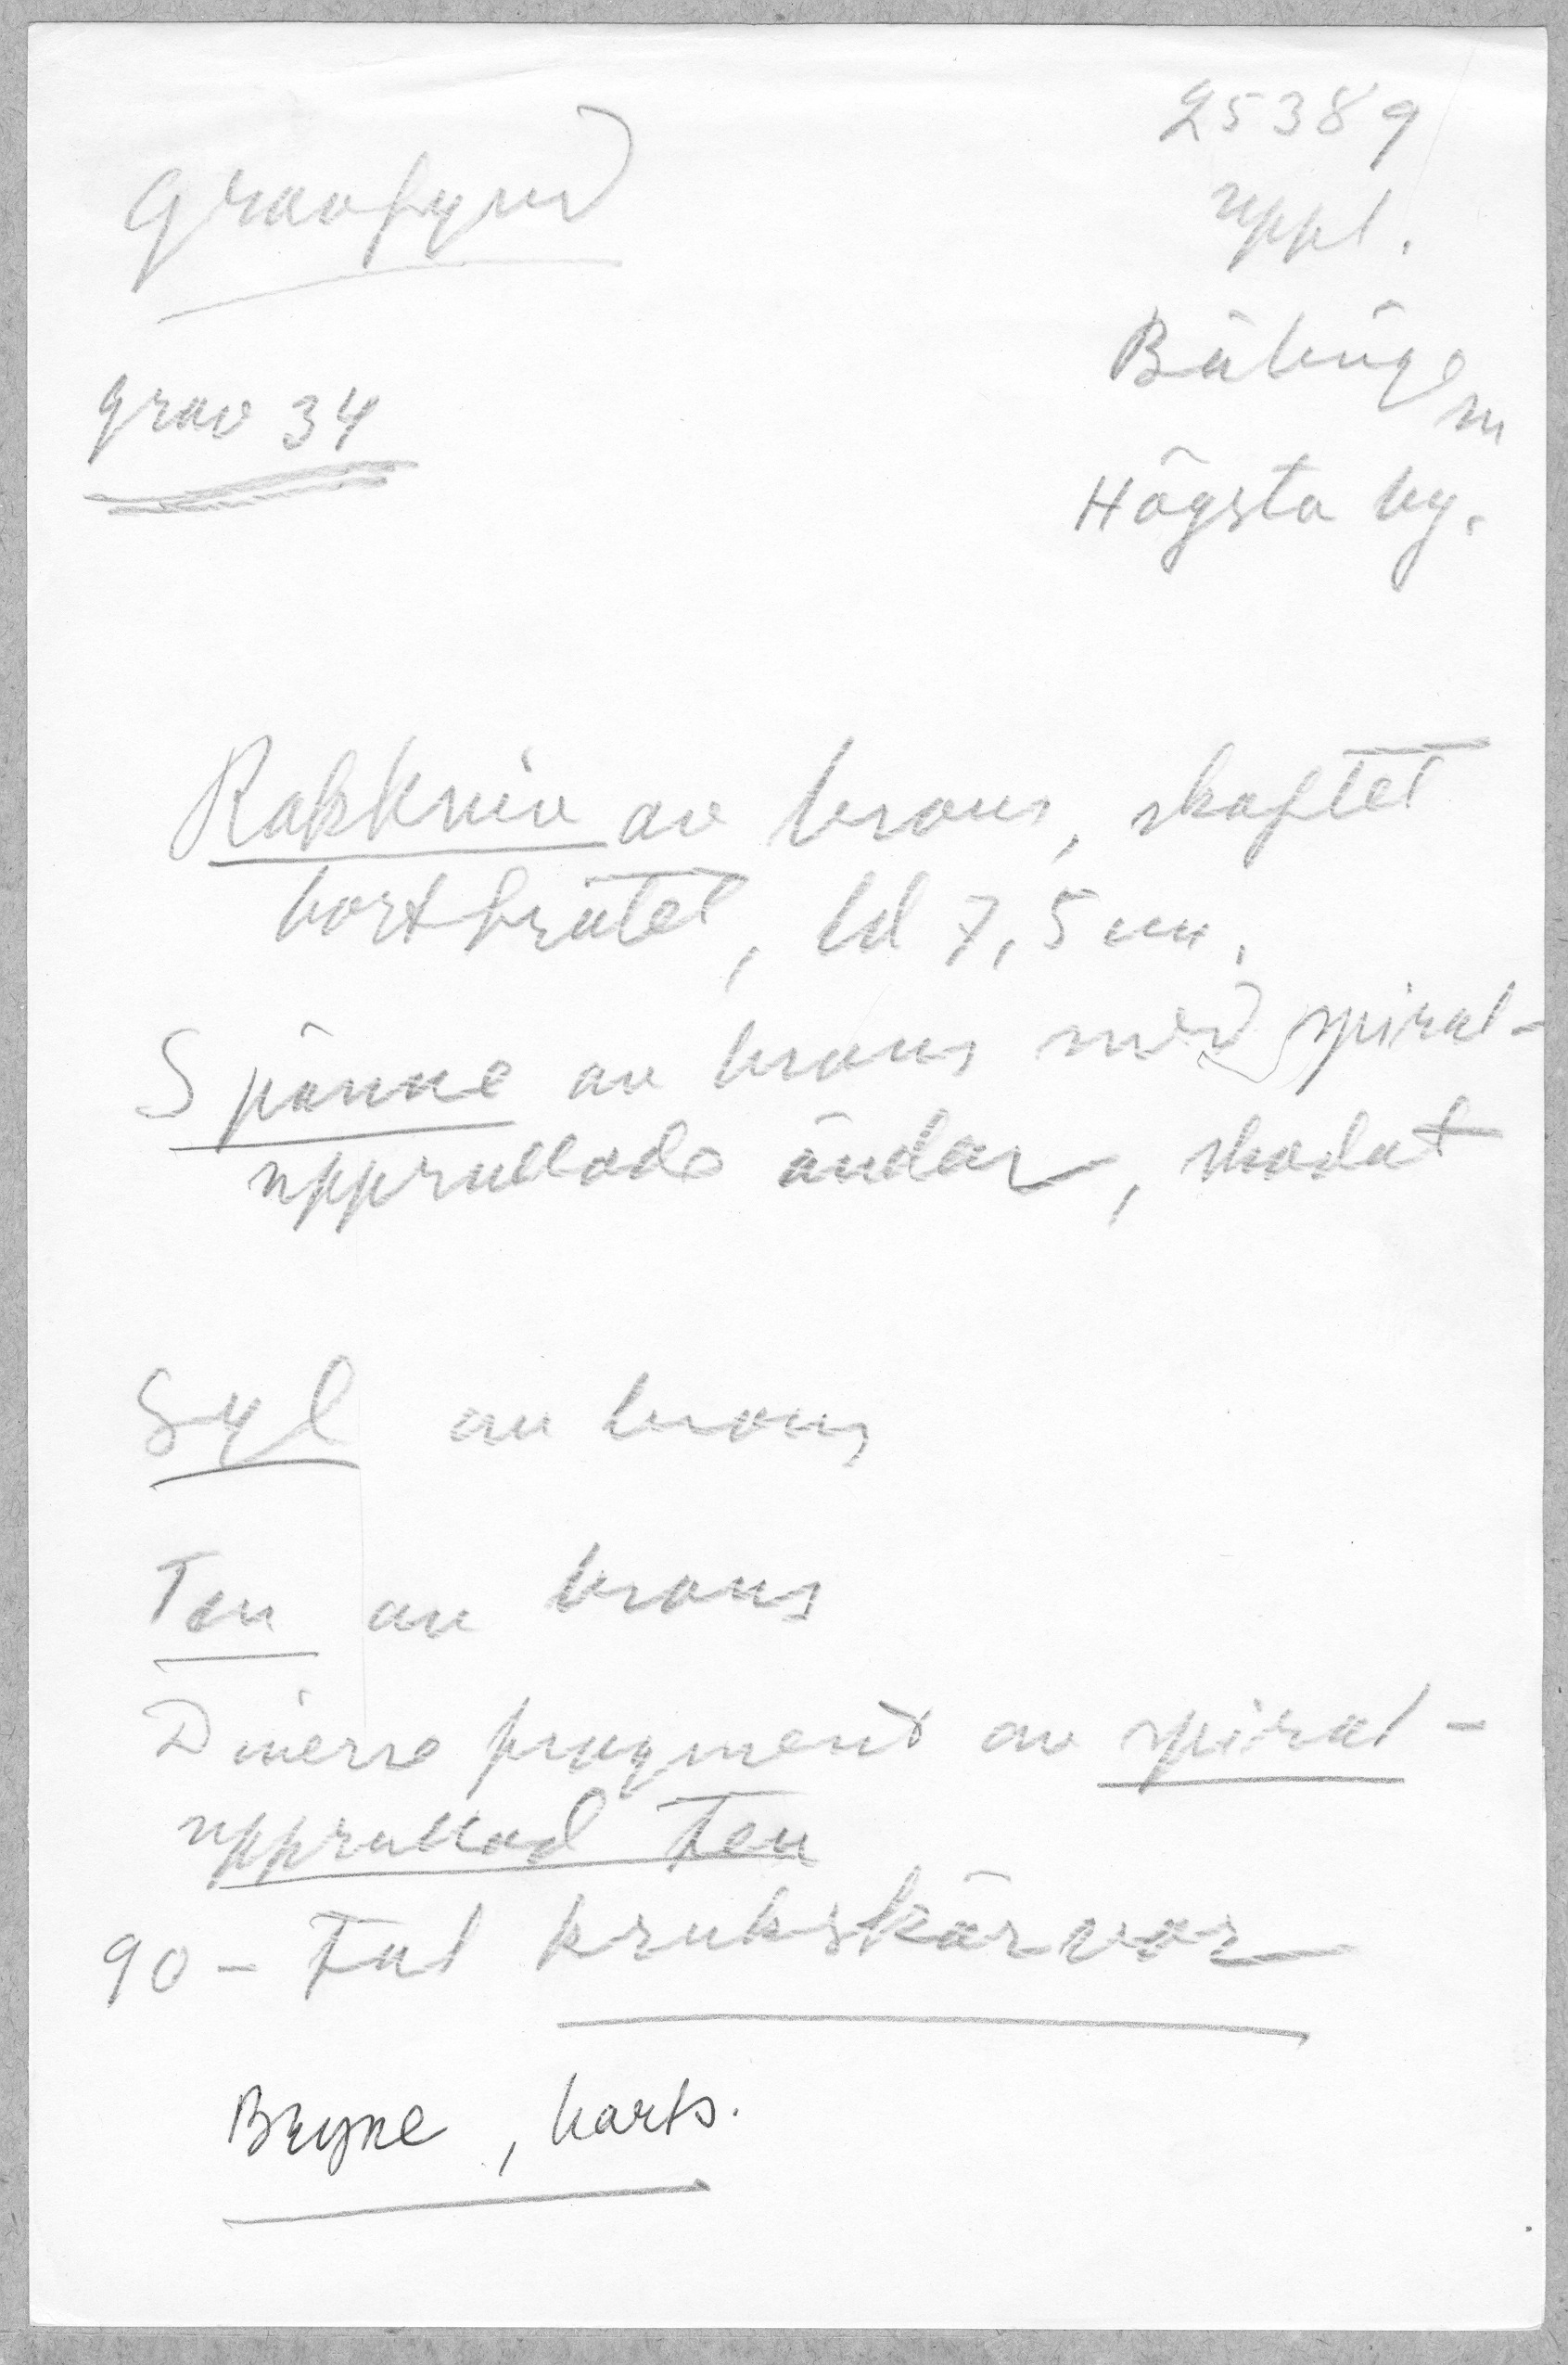 25389
Uppl.
Gravfynd
Bälinge
sn
grav 34
Högsta by.
Rakkniv av brons, skaftet
bortbrutet, ld 7,5 cm.
Spänne av brons med spiral-
upprullade ändar, skadat
Syl av brons
Ten av brons
Diverse fragment av spiral-
upprullad ten
90-tal krukskärvor
Bryne, harts.